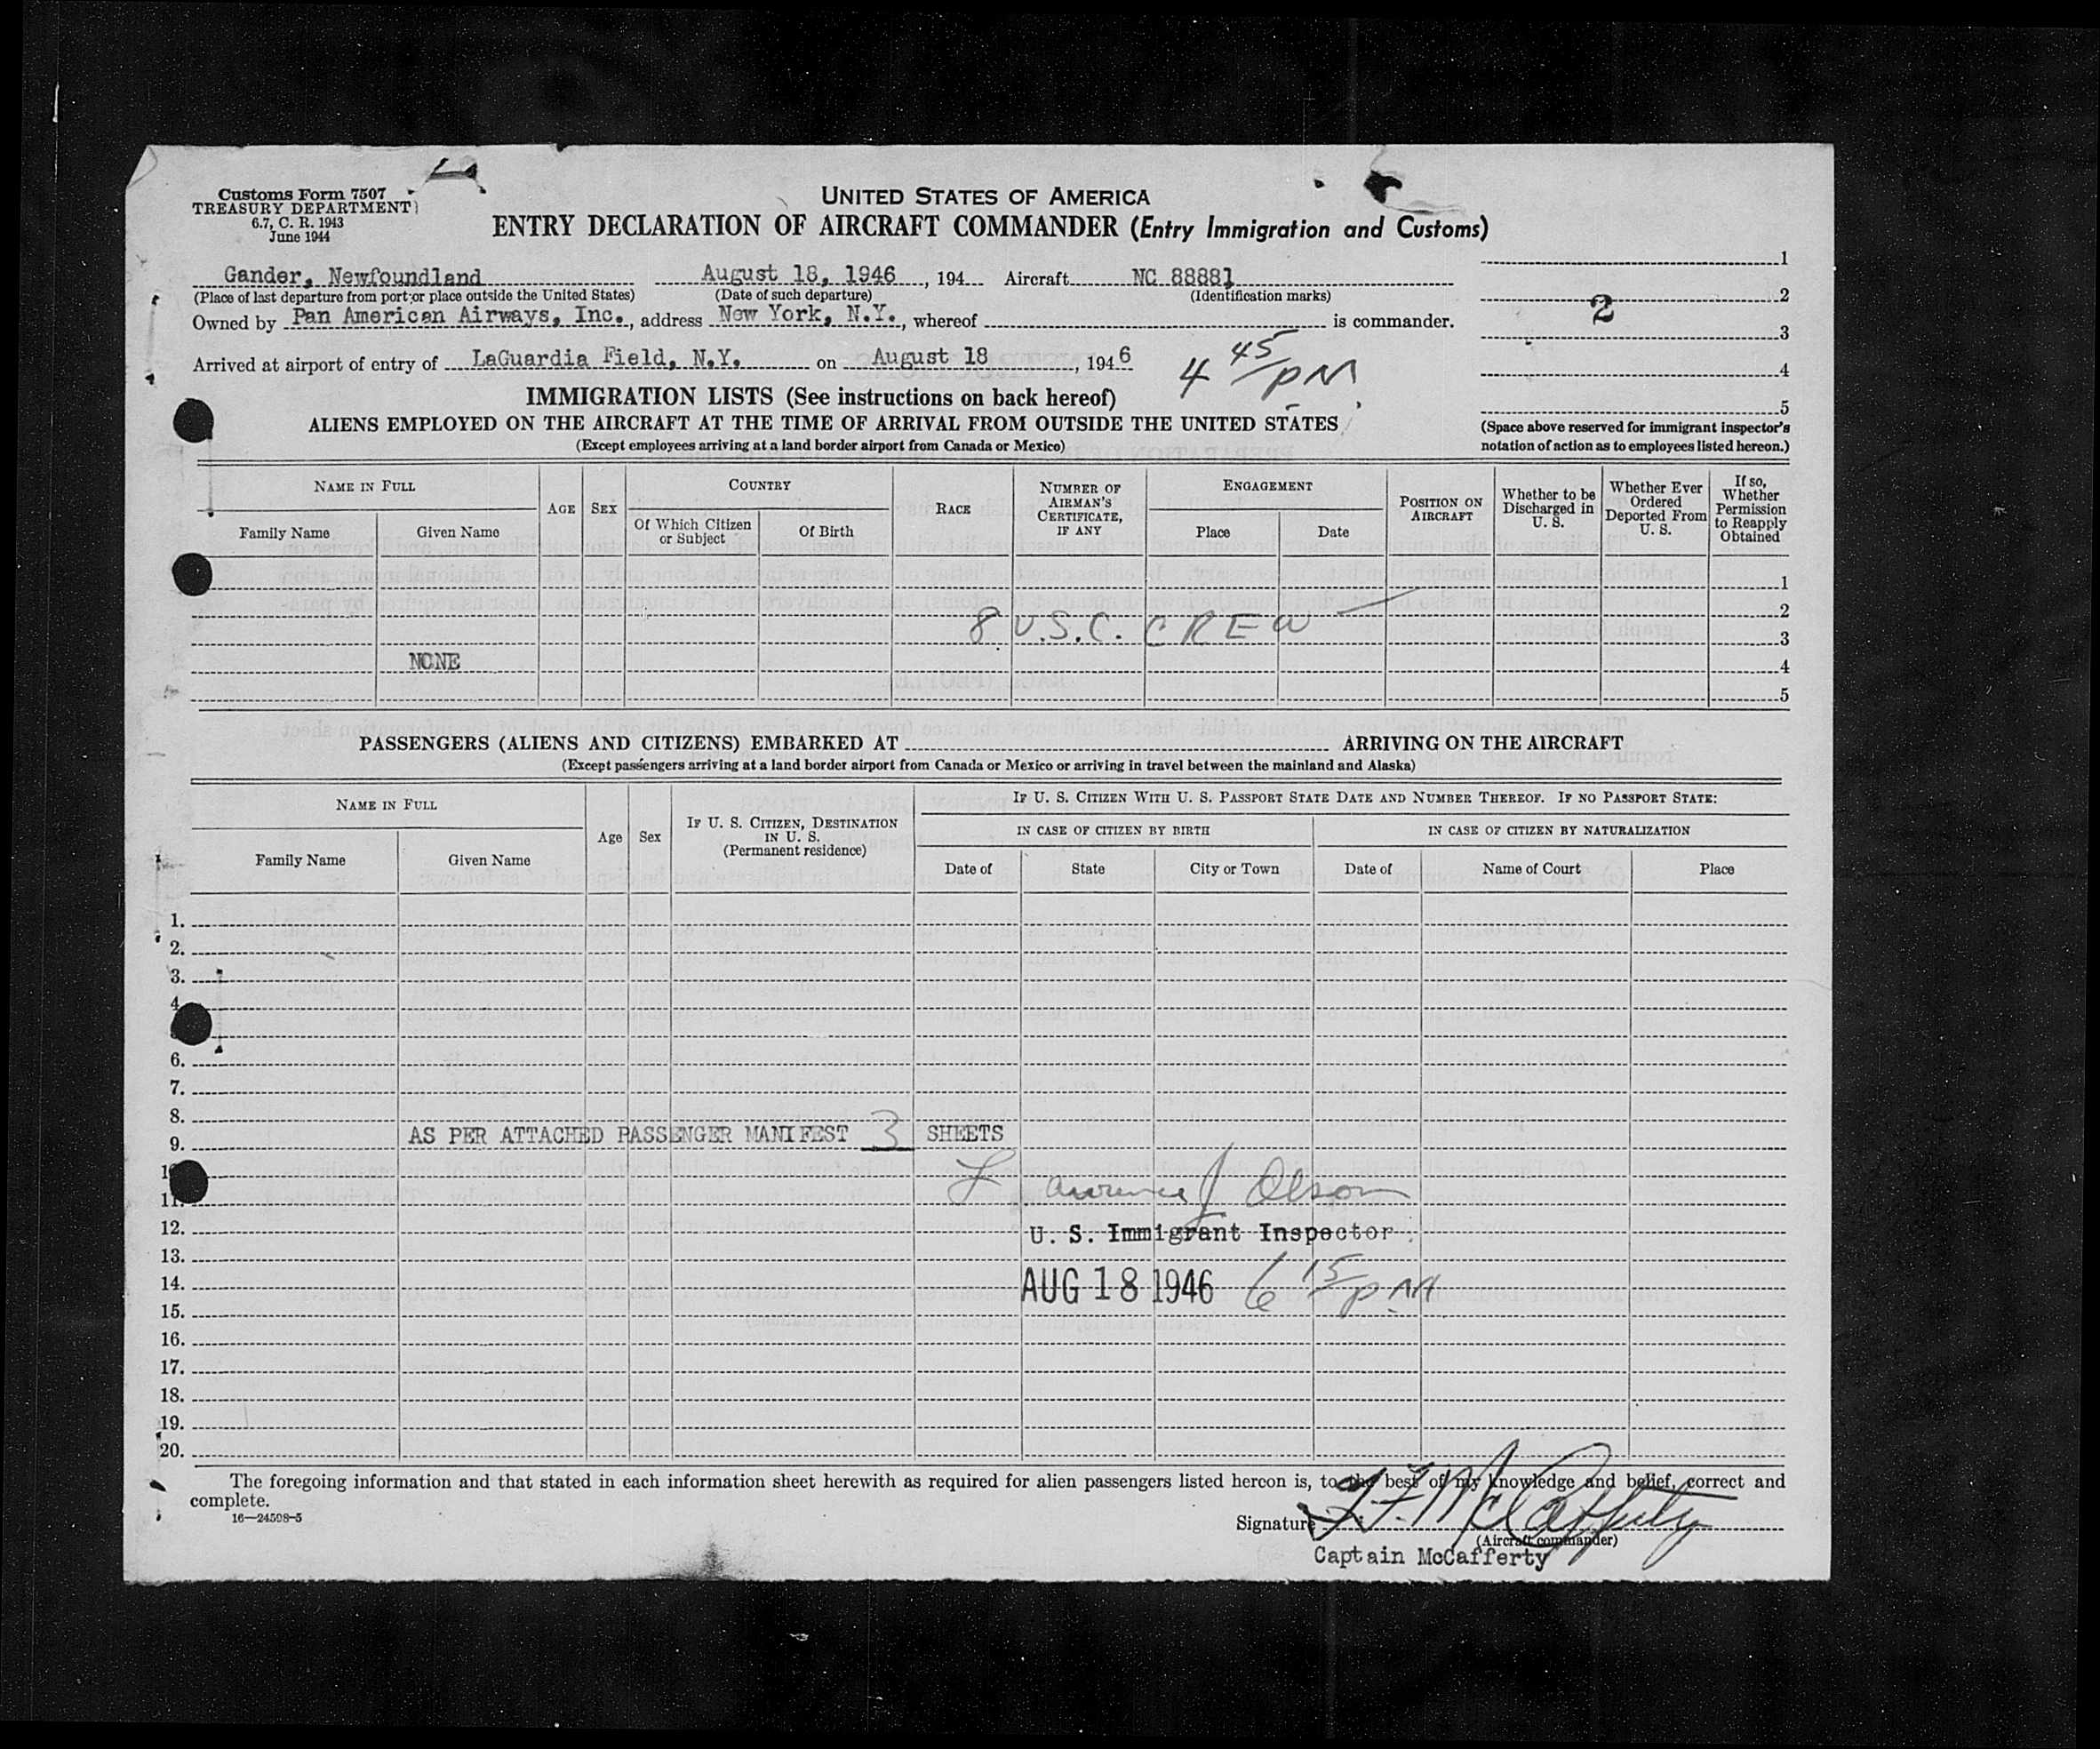 Customs Form 7507
TREASURY DEPARTMENT
6.7, C. R. 1943
June 1944
UNITED STATES OF AMERICA
ENTRY DECLARATION OF AIRCRAFT COMMANDER (Entry Immigration and Customs)
Gander, Newfoundland August 18, 1946, 194 Aircraft NC 88881
(Place of last departure from port or place outside the United States) (Date of such departure) (Identification marks)
Owned by Pan American Airways, Inc., address New York, N.Y., whereof is commander.
Arrived at airport of entry of LaGuardia Field, N.Y. on August 18, 1946
4 45/PM
1
2
2
3
4
5
(Space above reserved for immigrant inspector's
notation of action as to employees listed hereon.)
IMMIGRATION LISTS (See instructions on back hereof)
ALIENS EMPLOYED ON THE AIRCRAFT AT THE TIME OF ARRIVAL FROM OUTSIDE THE UNITED STATES
(Except employees arriving at a land border airport from Canada or Mexico)
NAME IN FULL
Family Name Given Name
AGE SEX
COUNTRY
Of Which Citizen or Subject Of Birth
RACE
NUMBER OF AIRMAN'S CERTIFICATE, IF ANY
ENGAGEMENT
Place Date
POSITION ON AIRCRAFT
Whether to be Discharged in U. S.
Whether Ever Ordered Deported From U. S.
If so, Whether Permission to Reapply Obtained
1
2
8 U.S.C. CREW
3
NONE 4
5
PASSENGERS (ALIENS AND CITIZENS) EMBARKED AT ARRIVING ON THE AIRCRAFT
(Except passengers arriving at a land border airport from Canada or Mexico or arriving in travel between the mainland and Alaska)
NAME IN FULL
Family Name Given Name
Age Sex
IF U. S. CITIZEN, DESTINATION IN U. S.
(Permanent residence)
IF U. S. CITIZEN WITH U. S. PASSPORT STATE DATE AND NUMBER THEREOF. IF NO PASSPORT STATE:
IN CASE OF CITIZEN BY BIRTH IN CASE OF CITIZEN BY NATURALIZATION
Date of State City or Town Date of Name of Court Place
1.
2.
3.
4.
6.
7.
8.
AS PER ATTACHED PASSENGER MANIFEST 3 SHEETS
9.
Lawrence J Olson
11.
12. U. S. Immigrant Inspector
13.
14. AUG 18 1946 6 15/PM
15.
16.
17.
18.
19.
20.
The foregoing information and that stated in each information sheet herewith as required for alien passengers listed hereon is, to the best of my knowledge and belief, correct and
complete.
16—24598-5
Signature McCafferty
(Aircraft commander)
Captain McCafferty